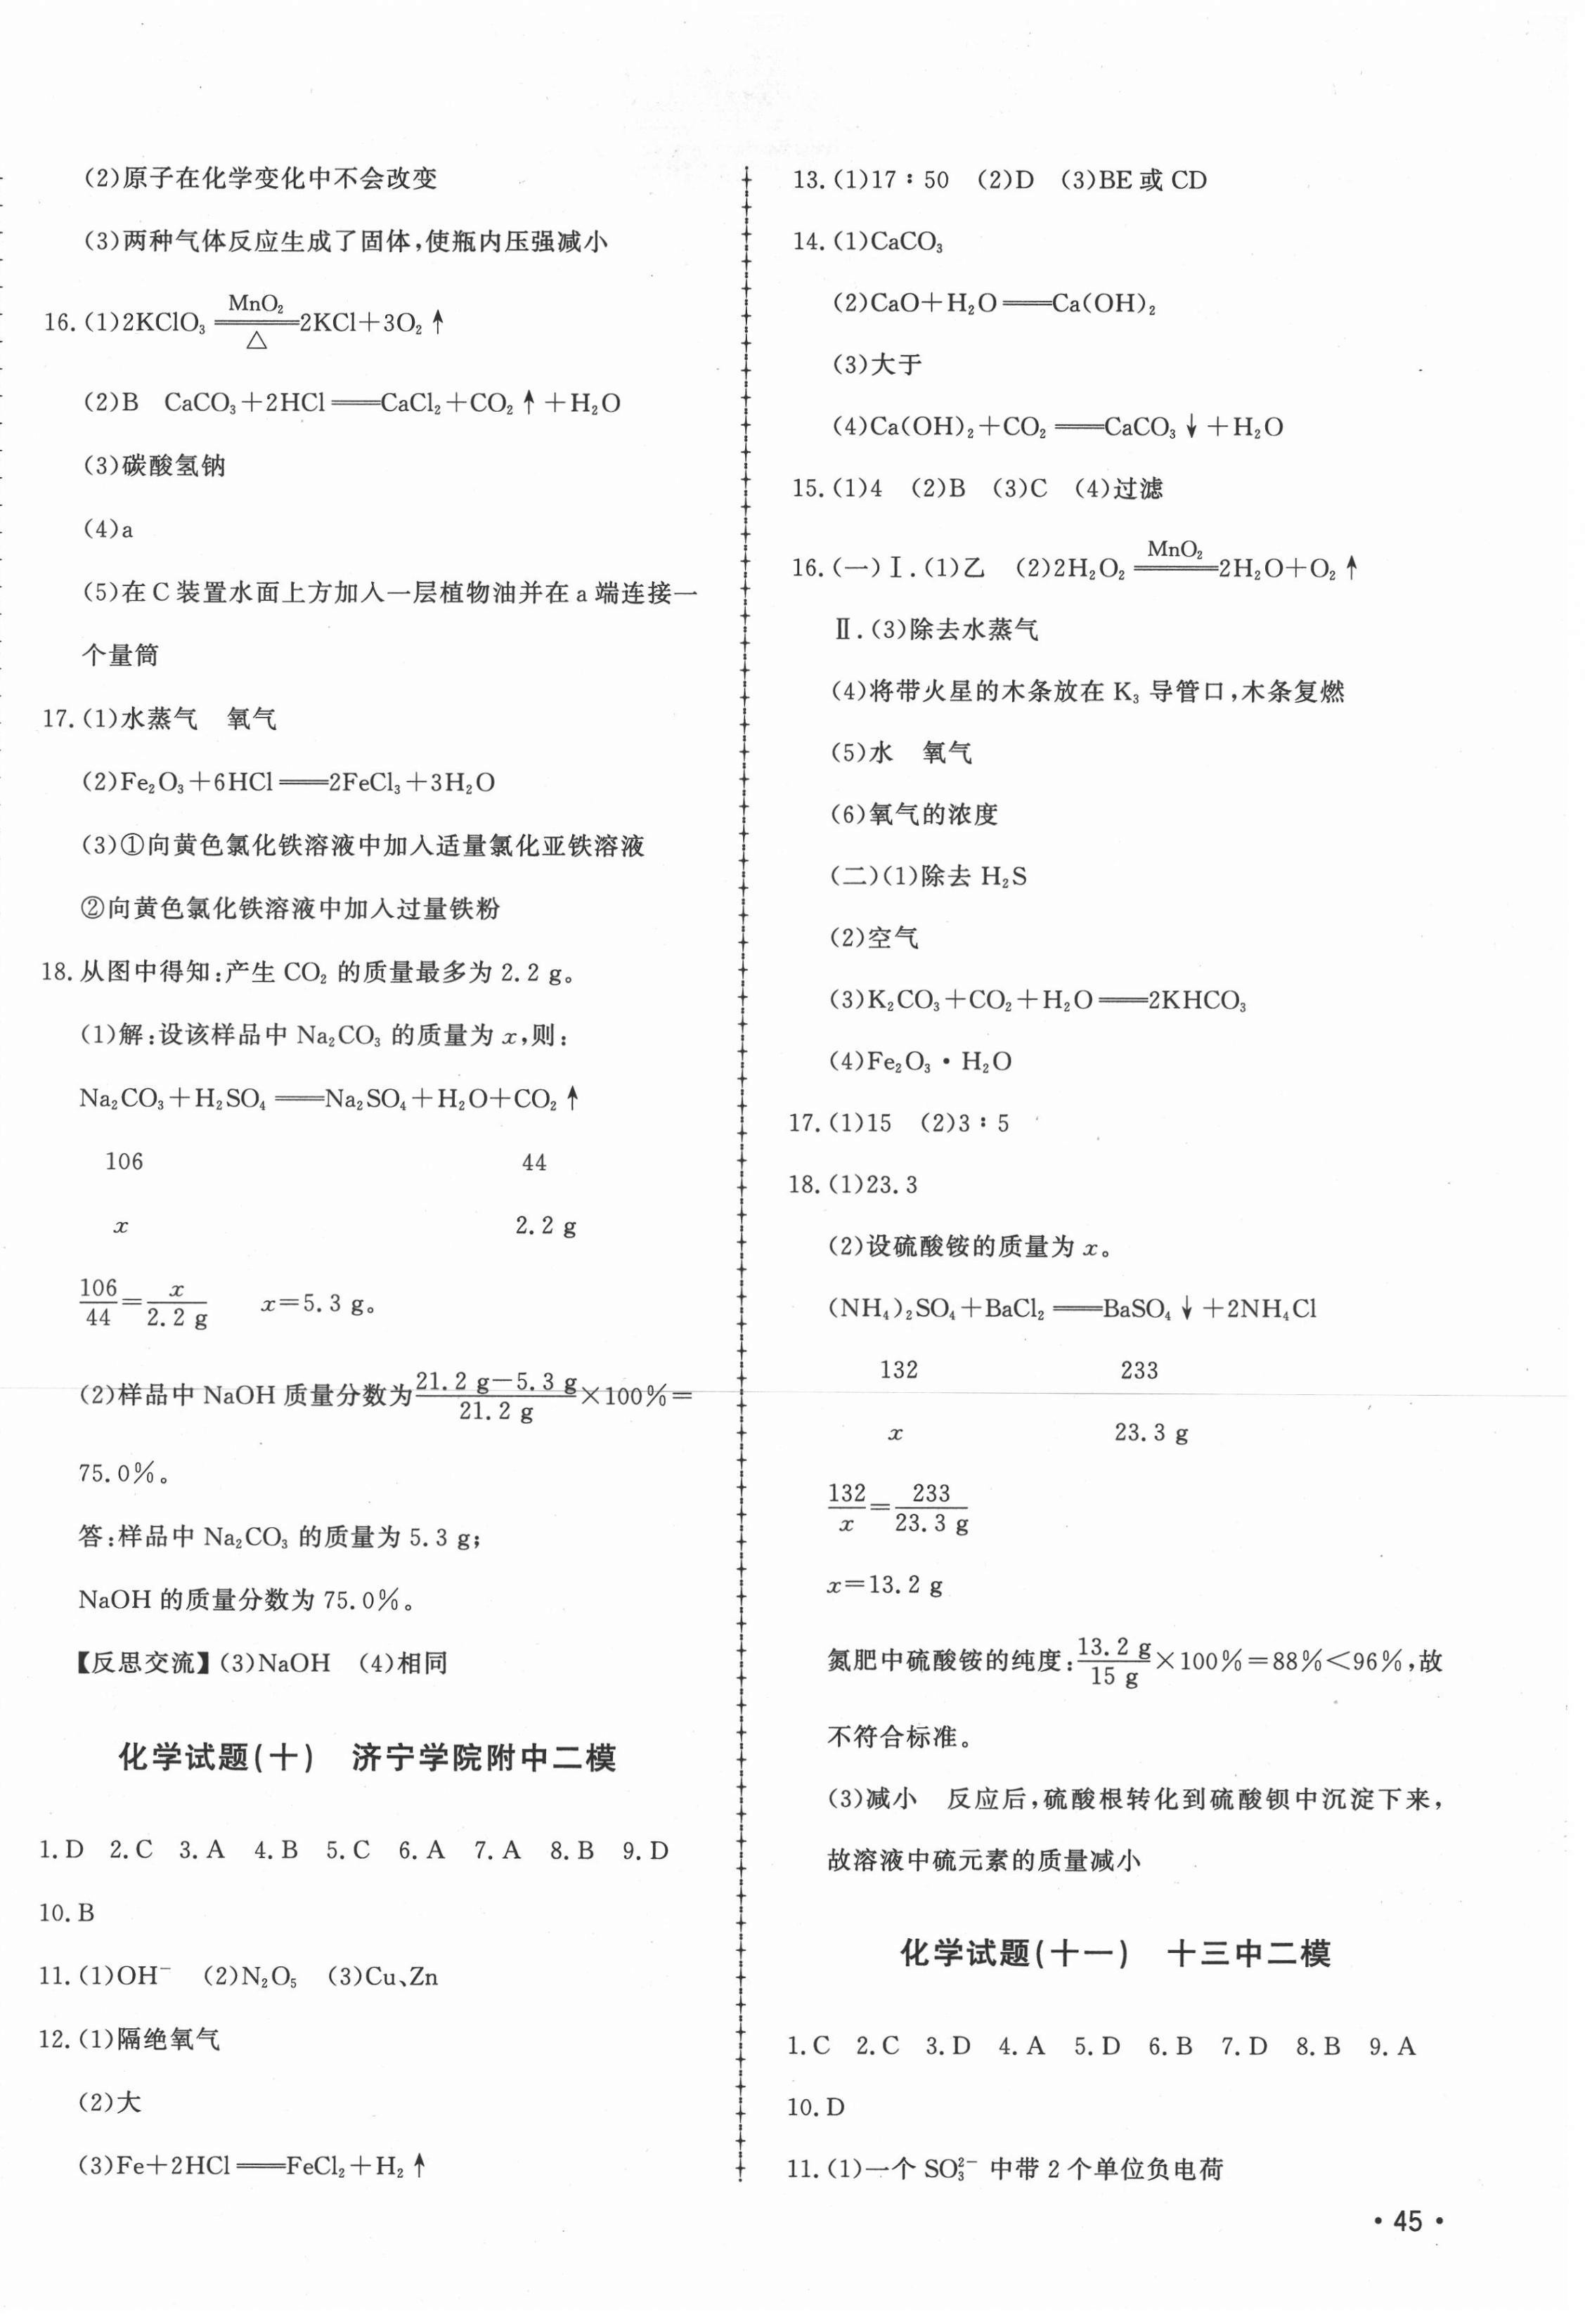 (2)原子在化学变化中不会改变
(3)两种气体反应生成了固体,使瓶内压强减小
16.(1)2KClO₃ ══(MnO₂/△)══ 2KCl+3O₂↑
(2)B CaCO₃+2HCl══CaCl₂+CO₂↑+H₂O
(3)碳酸氢钠
(4)a
(5)在C装置水面上方加入一层植物油并在a端连接一
个量筒
17.(1)水蒸气 氧气
(2)Fe₂O₃+6HCl══2FeCl₃+3H₂O
(3)①向黄色氯化铁溶液中加入适量氯化亚铁溶液
②向黄色氯化铁溶液中加入过量铁粉
18.从图中得知:产生CO₂的质量最多为2.2 g。
(1)解:设该样品中Na₂CO₃的质量为x,则:
Na₂CO₃+H₂SO₄══Na₂SO₄+H₂O+CO₂↑
106 44
x 2.2 g
106/44=x/2.2 g x=5.3 g。
(2)样品中NaOH质量分数为(21.2 g−5.3 g)/21.2 g×100%=
75.0%。
答:样品中Na₂CO₃的质量为5.3 g;
NaOH的质量分数为75.0%。
【反思交流】(3)NaOH (4)相同
化学试题(十) 济宁学院附中二模
1.D 2.C 3.A 4.B 5.C 6.A 7.A 8.B 9.D
10.B
11.(1)OH⁻ (2)N₂O₅ (3)Cu、Zn
12.(1)隔绝氧气
(2)大
(3)Fe+2HCl══FeCl₂+H₂↑
13.(1)17∶50 (2)D (3)BE或CD
14.(1)CaCO₃
(2)CaO+H₂O══Ca(OH)₂
(3)大于
(4)Ca(OH)₂+CO₂══CaCO₃↓+H₂O
15.(1)4 (2)B (3)C (4)过滤
16.(一)Ⅰ.(1)乙 (2)2H₂O₂ ══(MnO₂)══ 2H₂O+O₂↑
Ⅱ.(3)除去水蒸气
(4)将带火星的木条放在K₃导管口,木条复燃
(5)水 氧气
(6)氧气的浓度
(二)(1)除去H₂S
(2)空气
(3)K₂CO₃+CO₂+H₂O══2KHCO₃
(4)Fe₂O₃·H₂O
17.(1)15 (2)3∶5
18.(1)23.3
(2)设硫酸铵的质量为x。
(NH₄)₂SO₄+BaCl₂══BaSO₄↓+2NH₄Cl
132 233
x 23.3 g
132/x=233/23.3 g
x=13.2 g
氮肥中硫酸铵的纯度:13.2 g/15 g×100%=88%<96%,故
不符合标准。
(3)减小 反应后,硫酸根转化到硫酸钡中沉淀下来,
故溶液中硫元素的质量减小
化学试题(十一) 十三中二模
1.C 2.C 3.D 4.A 5.D 6.B 7.D 8.B 9.A
10.D
11.(1)一个SO₃²⁻中带2个单位负电荷
·45·